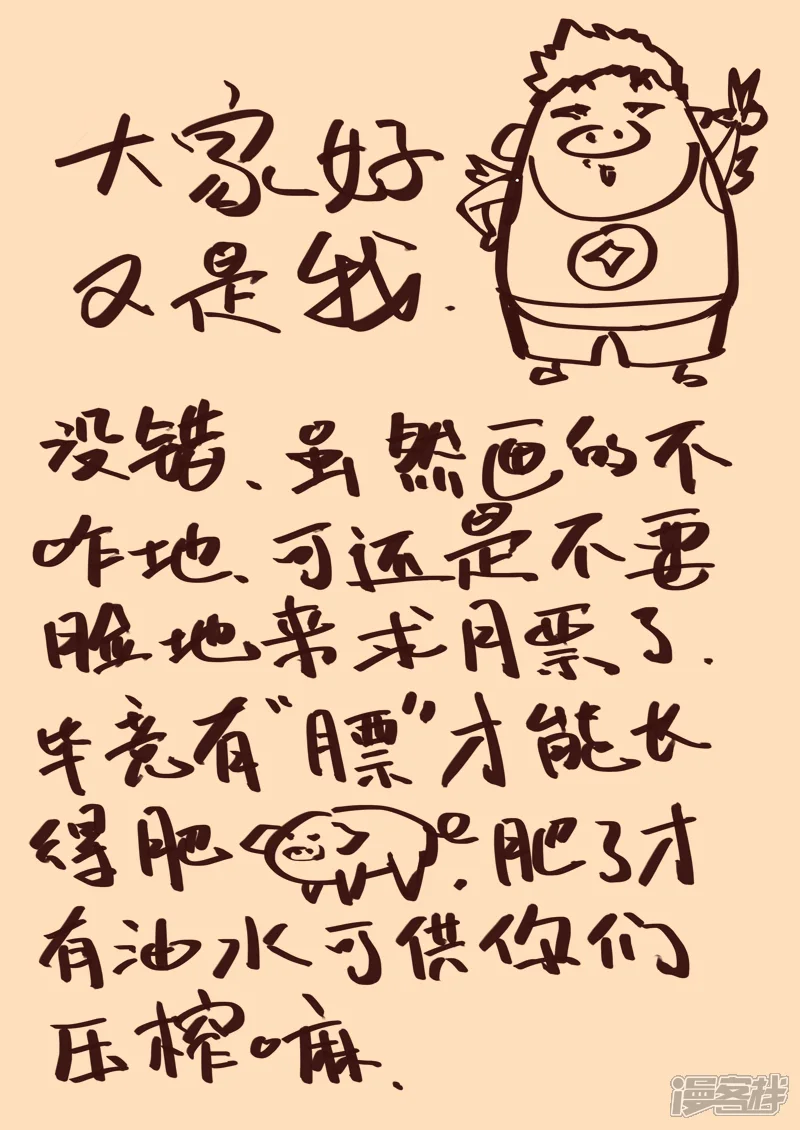 大家好
又是我.
没错、虽然画的不
咋地、可还是不要
脸地来求月票了.
毕竟有“膘”才能长
得肥.肥了才
有油水可供你们
压榨嘛.
漫客栈